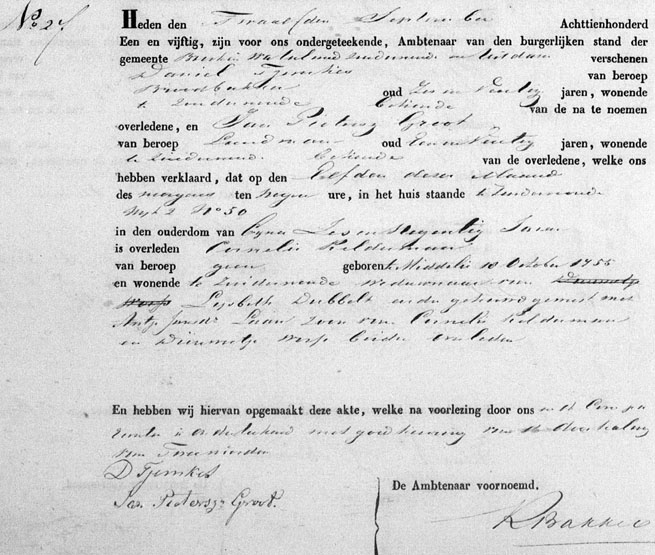 No 27
Heden den Twaalfden September Achttienhonderd
Een en vijftig, zijn voor ons ondergeteekende, Ambtenaar van den burgerlijken stand der
gemeente Broek in Waterland Zuiderwoude en Uitdam verschenen
Daniel Tjemkes van beroep
Broodbakker oud Zes en Veertig jaren, wonende
te Zuiderwoude bekende van de na te noemen
overledene, en Jan Pietersz Groot
van beroep Landman oud Een en Veertig jaren, wonende
te Zuiderwoude bekende van de overledene, welke ons
hebben verklaard, dat op den Elfden dezer Maand
des morgens ten Negen ure, in het huis staande te Zuiderwoude
Wijk 2 No 50
in den ouderdom van bijna Zes en Negentig Jaren
is overleden Cornelis Kelderman
van beroep geen geboren te Middelie 10 October 1755
en wonende te Zuiderwoude Weduwnaar van Dieuwetje
Worp Lijsbeth Dubbelt eerder gehuwd geweest met
Antje Jansdr Laan Zoon van Cornelis Kelderman
en Dieuwetje Worp beiden overleden
En hebben wij hiervan opgemaakt deze akte, welke na voorlezing door ons en de Compa
ranten is onderteekend met goedkeuring van de doorhaling
van Twee woorden
D Tjemkes
Jan Pietersz Groot.
De Ambtenaar voornoemd.
K Bakker